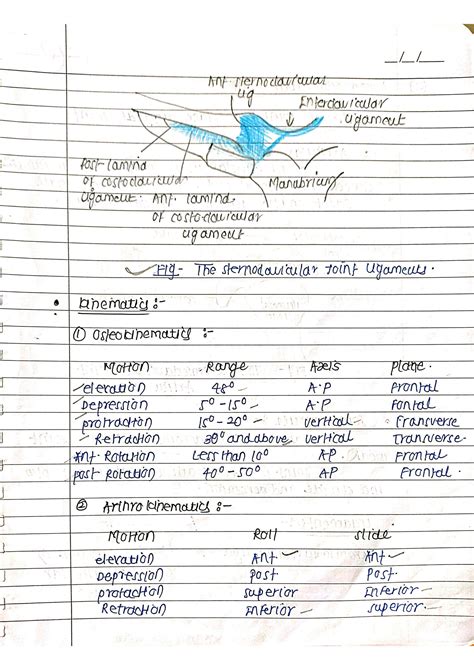 _/_/_
Ant. sternoclavicular
lig
Interclavicular
ligament
Post. lamina
of costoclavicular
ligament.
Manubrium
Ant. lamina
of costoclavicular
ligament
Fig:- The sternoclavicular Joint ligaments.
• Kinematics :-
① Osteokinematics :-
Motion Range Axis plane.
elevation 48° A.P Frontal
Depression 5°-15° A.P Fontal
protraction 15°-20° vertical Transverse
Retraction 30° and above vertical Tranverse
Ant. Rotation Less than 10° AP. Frontal
post Rotation 40°-50° AP Frontal.
② Arthrokinematics :-
Motion Roll slide.
elevation Ant Ant.
Depression post Post.
protaction superior Inferior
Retraction Inferior superior.